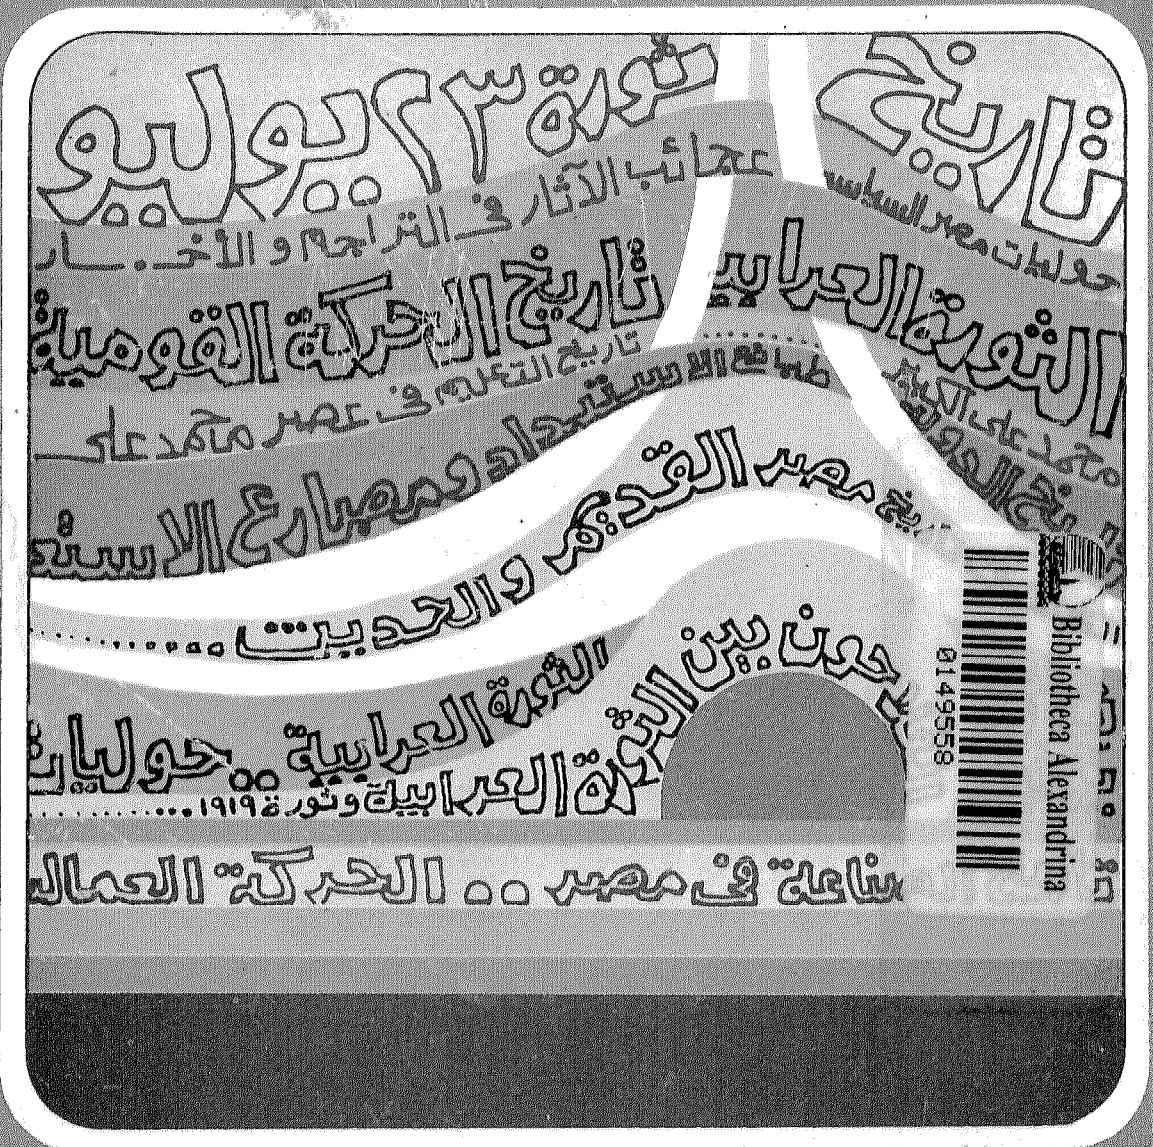 تاريخ
ثورة ٢٣ يوليو
حوليات مصر السياسي
عجائب الآثار في التراجم والأخبار
الثورة العرابي
تاريخ الحركة القومية
محمد على الكبير
تاريخ التعليم فى عصر محمد على
طبائع الاستبداد ومصارع الاستع
يخ مصر القديم والحديث
الثورة العرابية .. حوليات
حون بين الثورة العرابية وثورة ١٩١٩
ناعة فى مصر .. الحركة العمالي
Bibliotheca Alexandrina
0149558